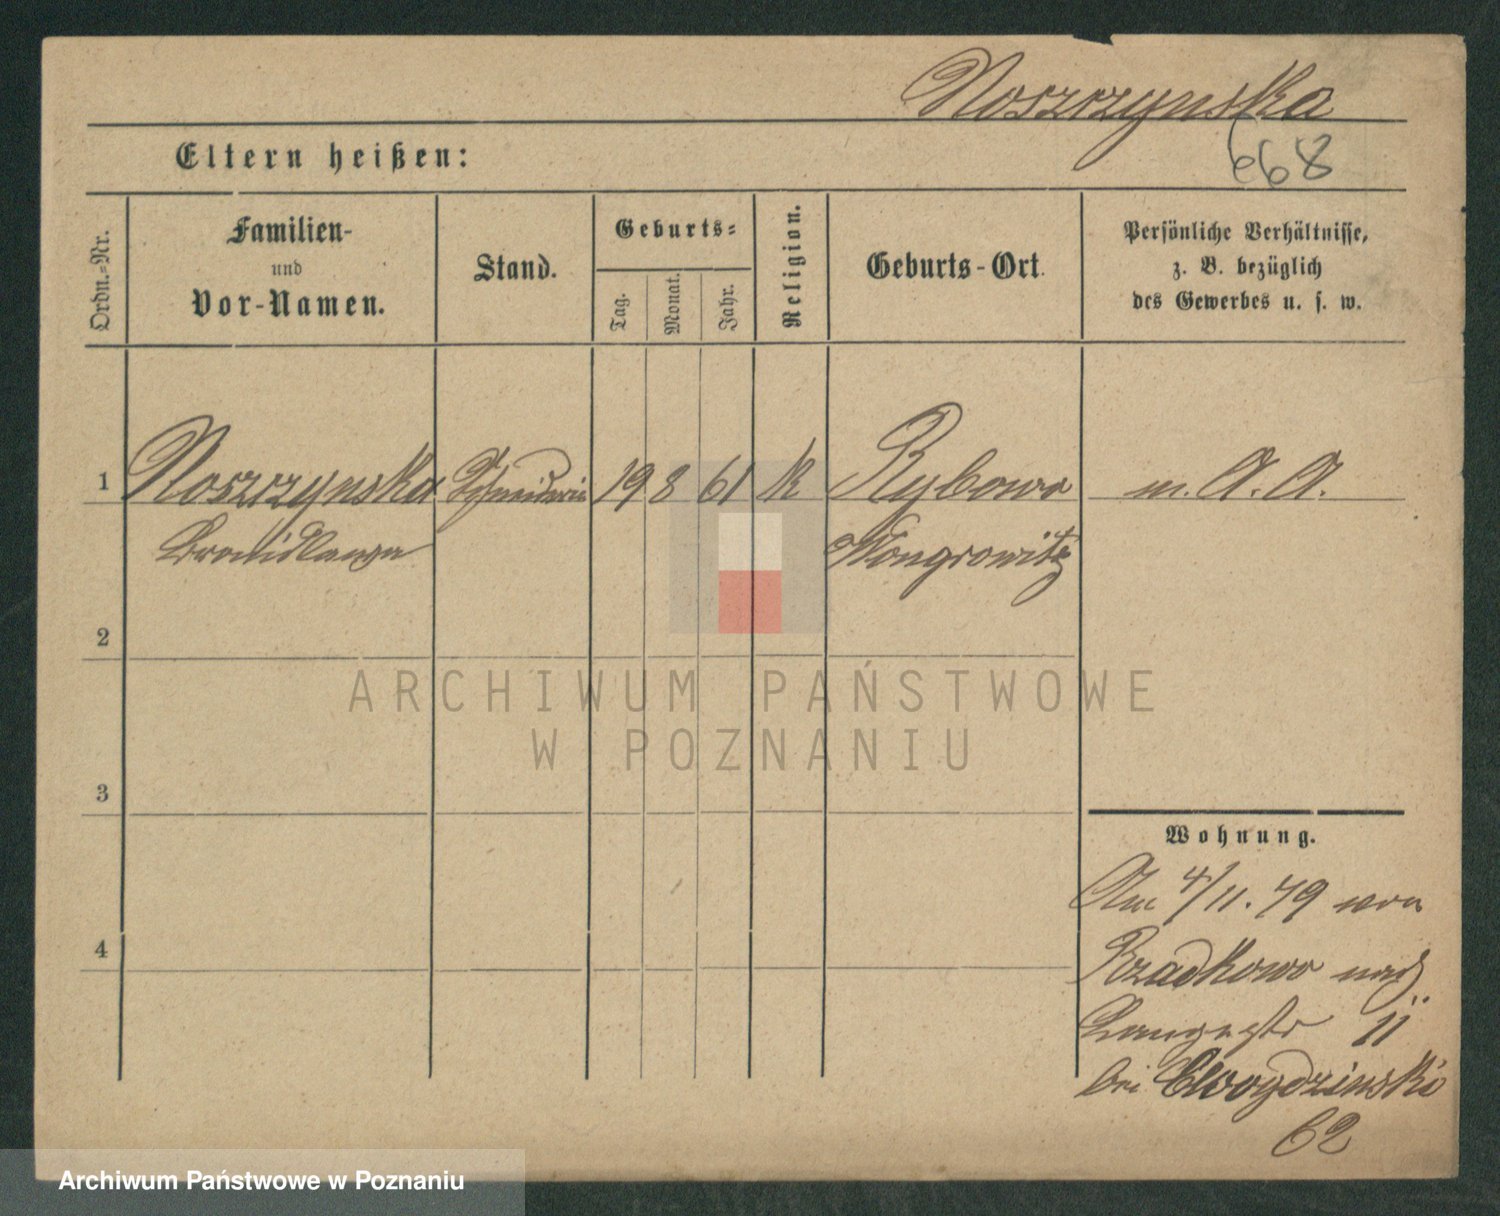 Noszczynska
668
Eltern heißen:
Ordn.-Nr.
Familien-
und
Vor-Namen.
Stand.
Geburts-
Tag.
Monat.
Jahr.
Religion.
Geburts-Ort.
Persönliche Verhältnisse,
z. B. bezüglich
des Gewerbes u. s. w.
1 Noszczynska Schneiderin 19 8 61 K Rybowo m. A. A.
Bronislawa Wongrowitz
2
ARCHIWUM PAŃSTWOWE
W POZNANIU
3
Wohnung.
Am 4/11. 79 von
nach
Langestr 11
bei
62
4
Archiwum Państwowe w Poznaniu